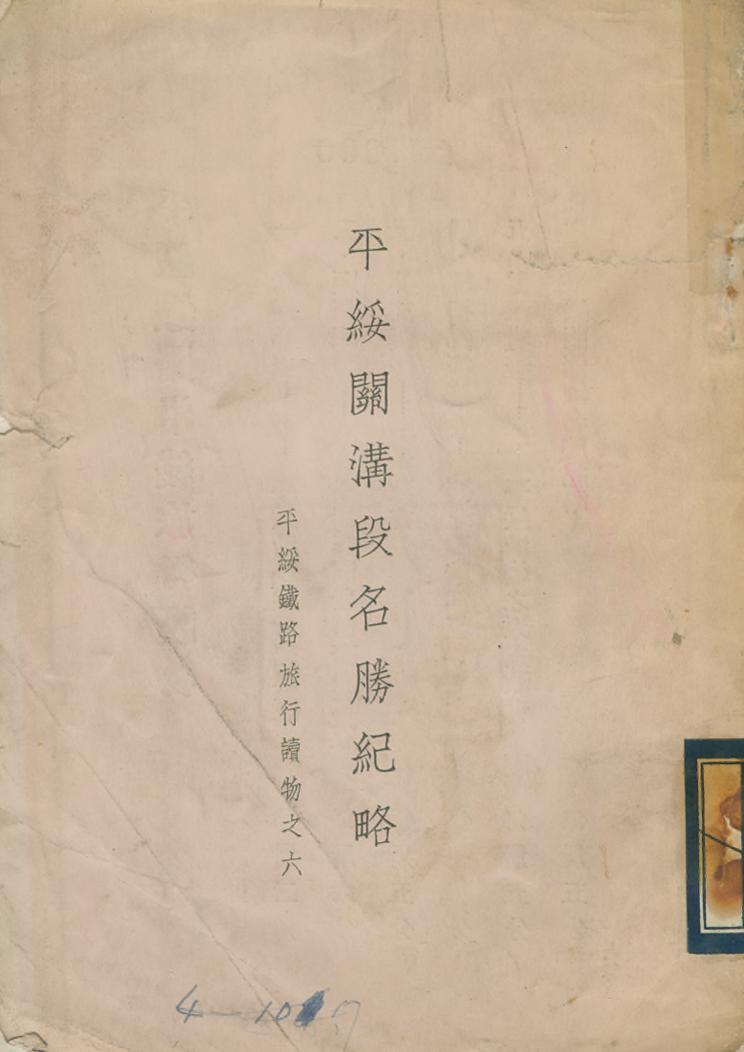 平綏關溝段名勝紀略
平綏鐵路旅行讀物之六